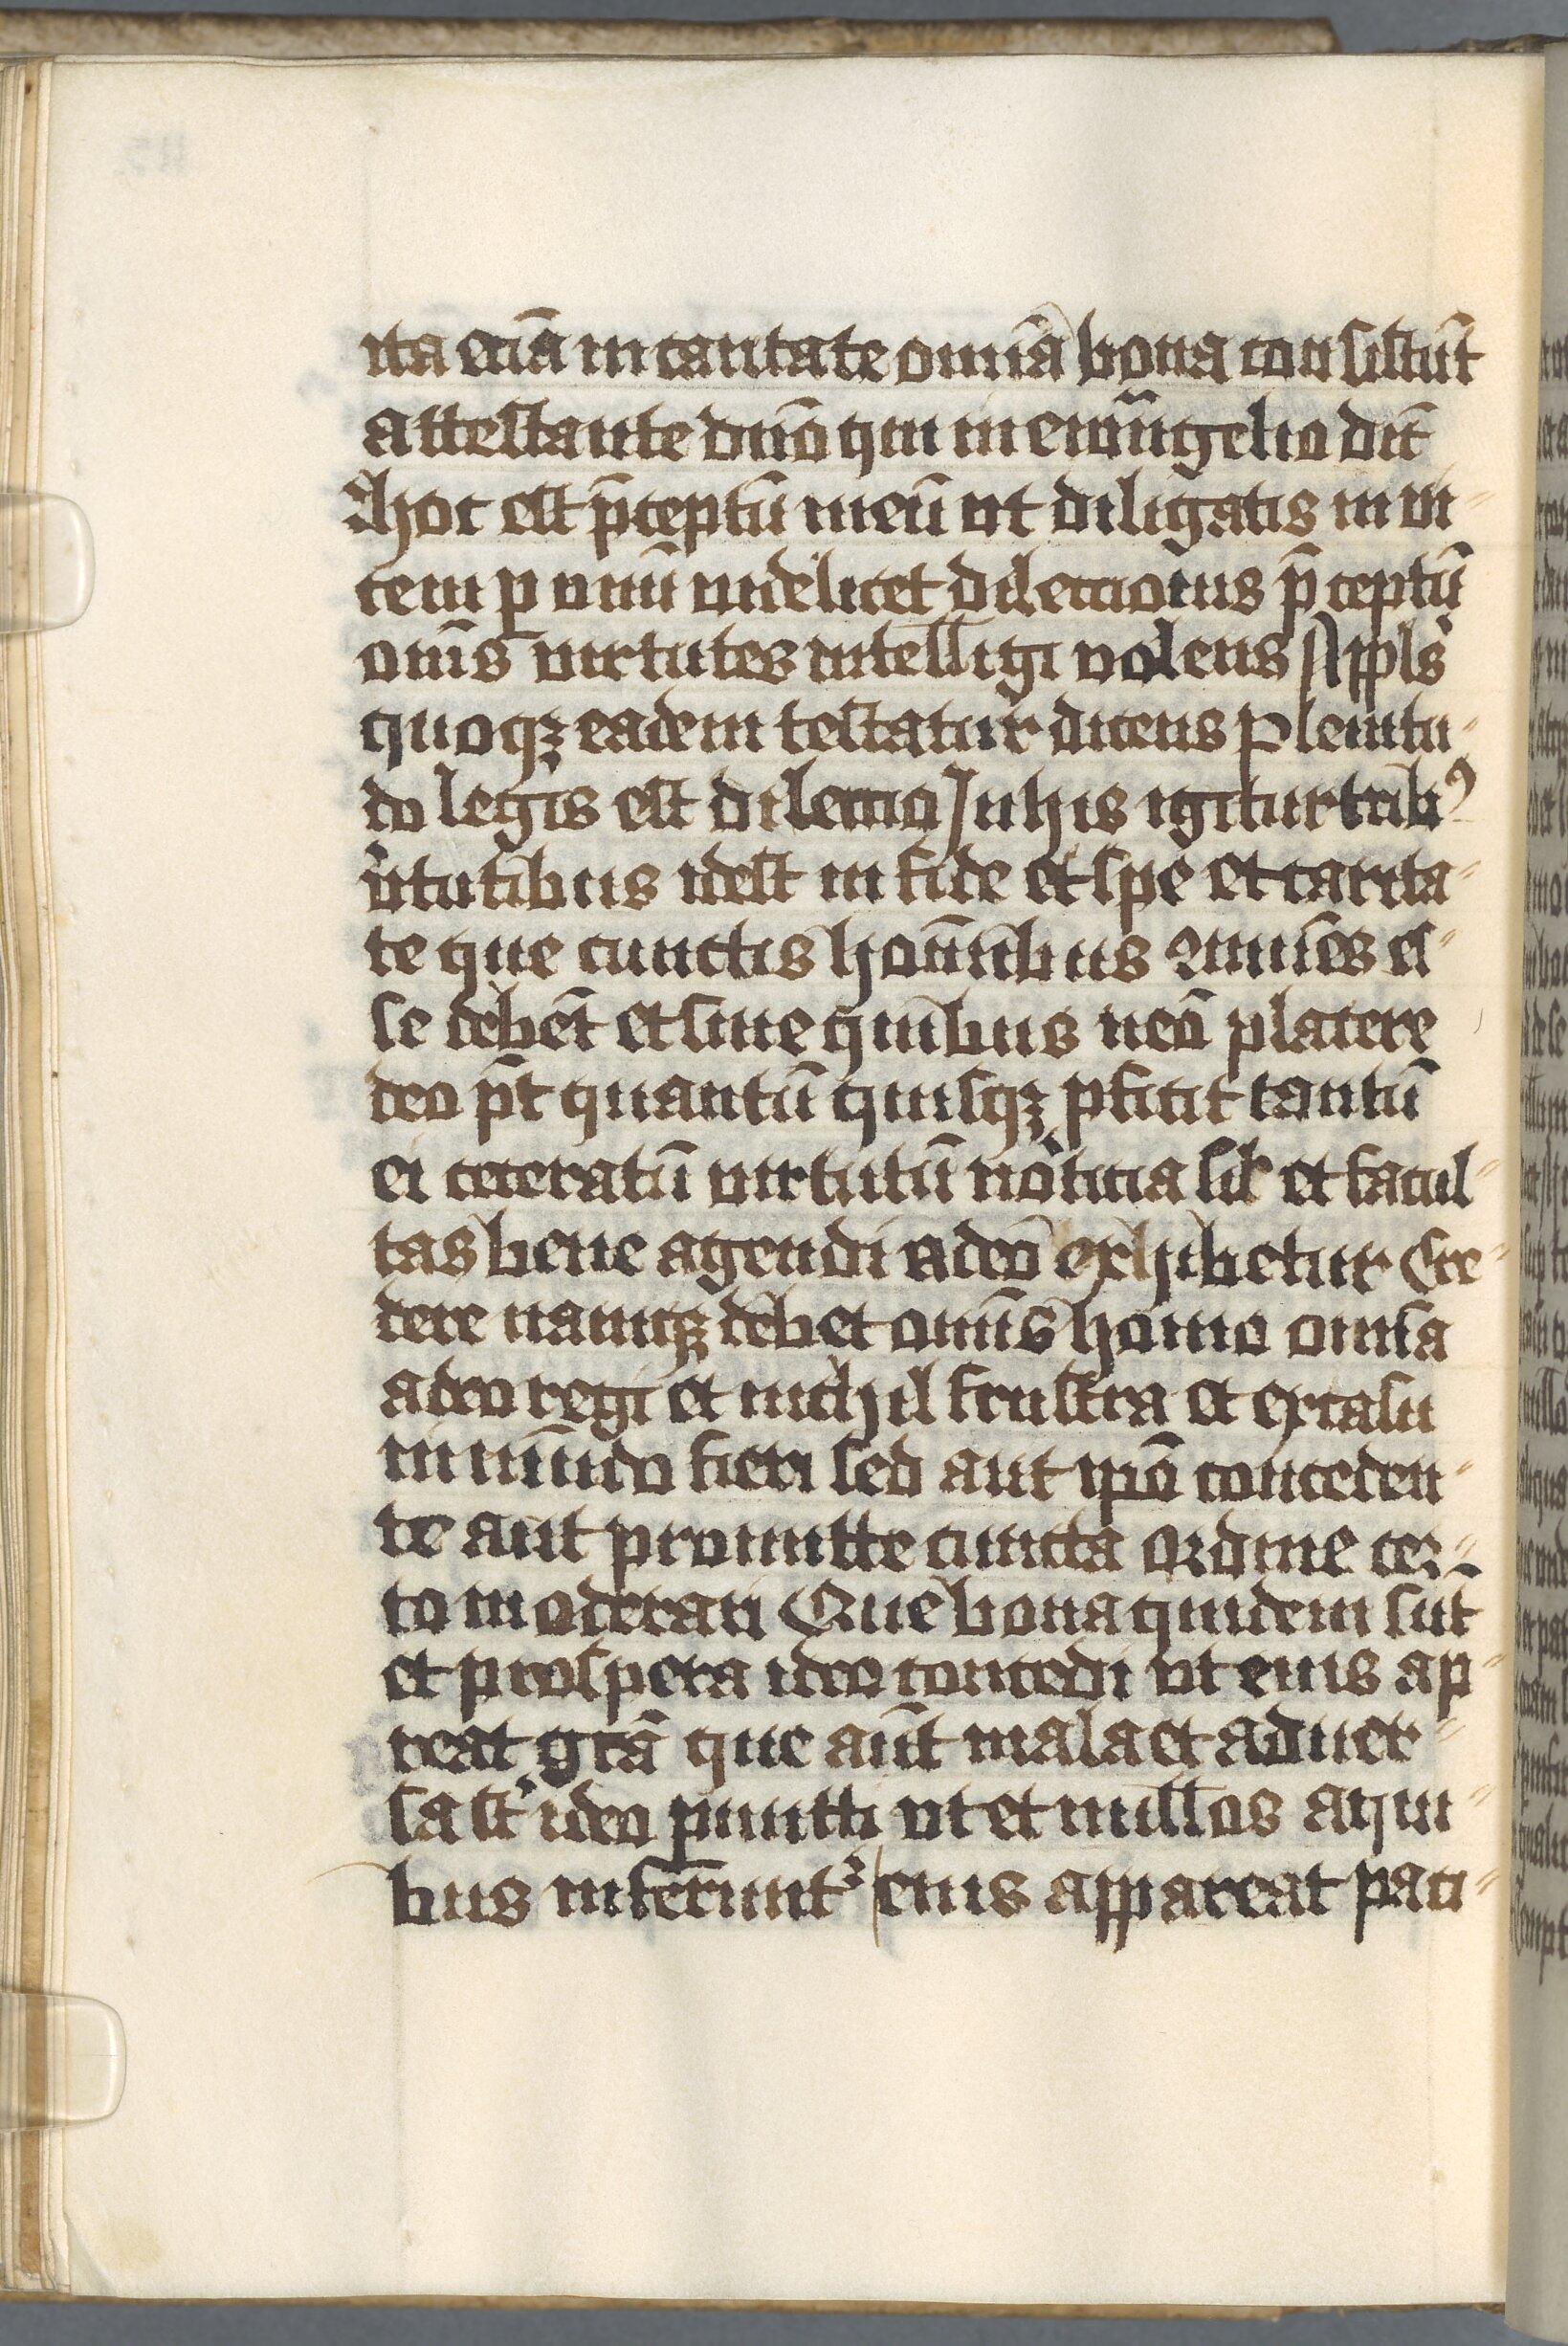 ita eciā in caritate omnia bona consistūt
attestante dnō qui in ewāngelio dic̄
Hoc est p̄ceptū meū vt diligatis in vi-
cem p vnū videlicet dileccionis p̄ceptū
omīs virtutes intelligi volens Appls
quoqꝫ eadem testatur dicens Plenitu-
do legis est dileccio In his igitur trib⁹
v̓tutibus idest in fide et spe et carita-
te que cunctis hoīnibus cōmunes es-
se debēt et sine quibus nemō placere
deo pt̄ quantū quisqꝫ pficit tantū
ei ceterarū virtutū noticia sil̓ et facul-
tas bene agendi adeō exhibetur Cre-
dere namqꝫ debet omīs homo omīa
a deo regi et nichil frustra et excasu
in mūndo fieri sed aut ipō conceden-
te aut promittte cuncta ordine cer-
to moderari Que bona quidem sūt
et prospera ideo concedi vt eius ap-
reat grā que aūt mala et aduer-
sa st̄ ideo pmitti vt et nullos aqui-
bus inferunt᷑ eius appareat paci-